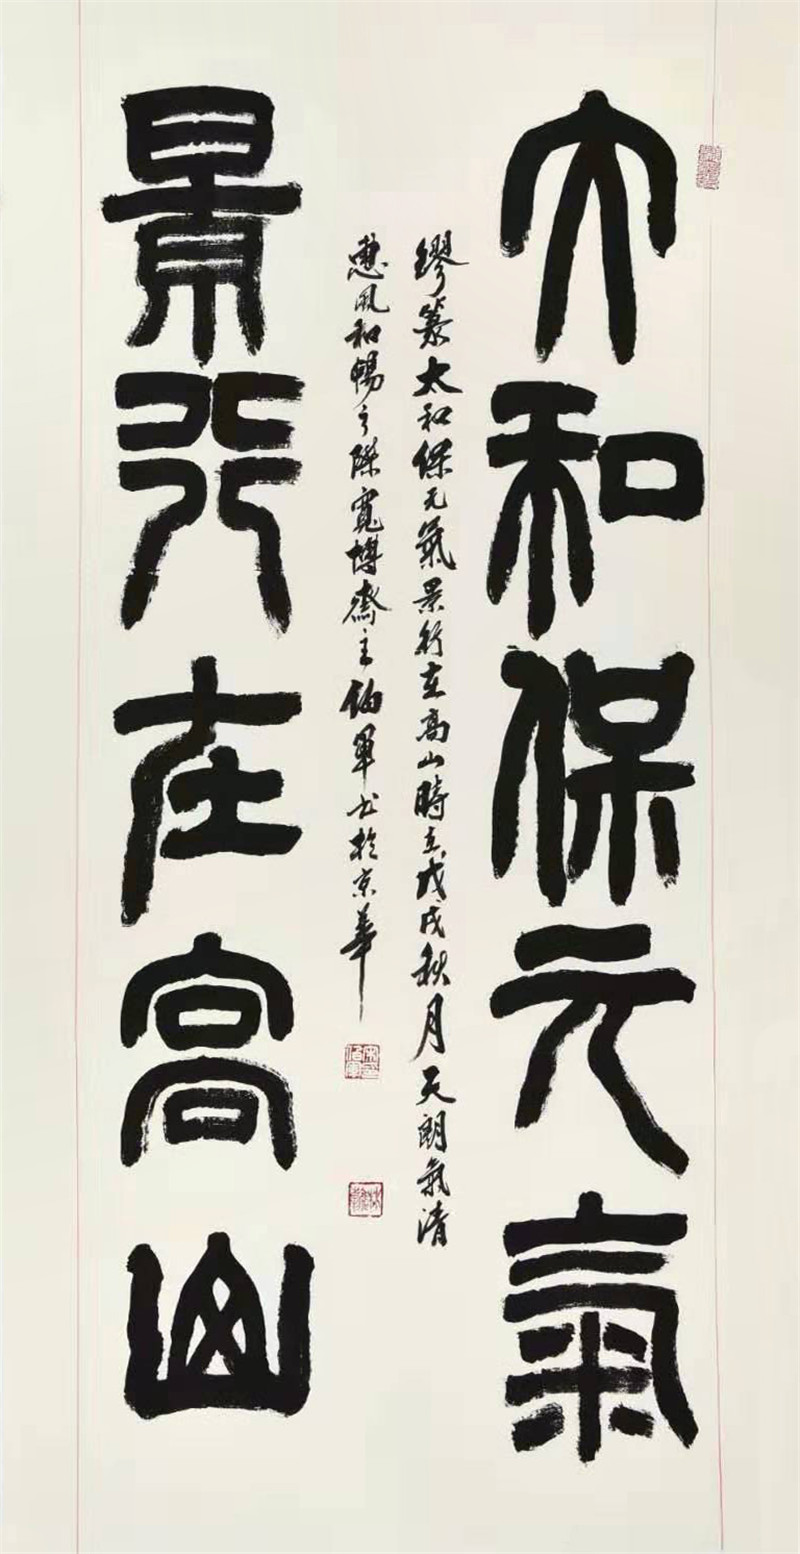 大和保元氣
景行在高山
繆篆太和保元氣景行在高山時在戊戌秋月天朗氣清
惠風和暢之際寬博齋主伯軍书於京華